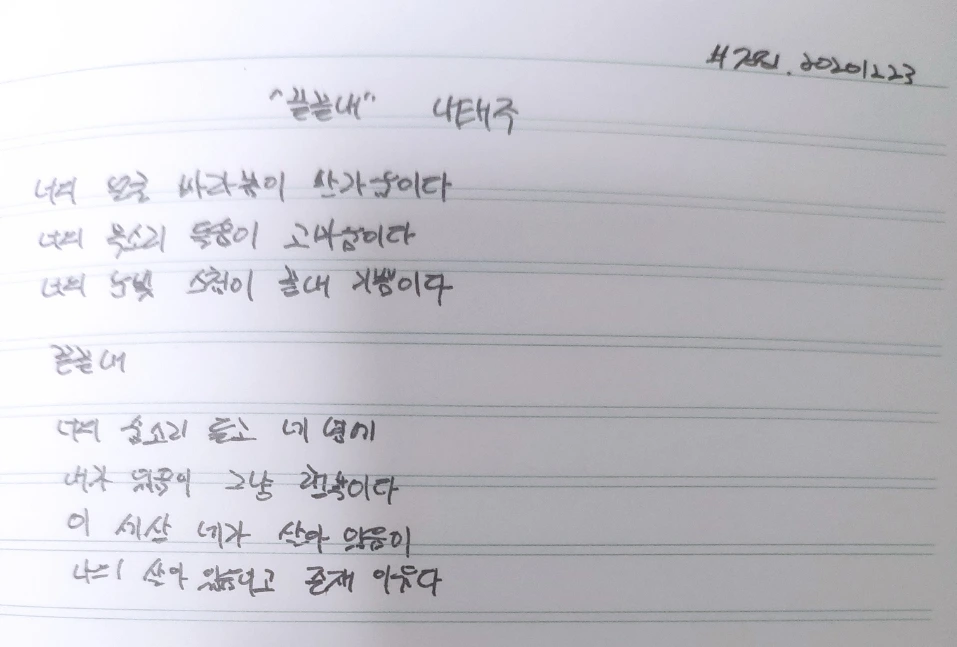 20201223
"끝끝내" 나태주
너의 얼굴 바라봄이 반가움이다
너의 목소리 들음이 고마움이다
너의 눈빛 스침이 끝내 기쁨이다
끝끝내
너의 숨소리 듣고 네 옆에
내가 있음이 그냥 행복이다
이 세상 네가 살아 있음이
나의 살아 있음이고 존재 이유다